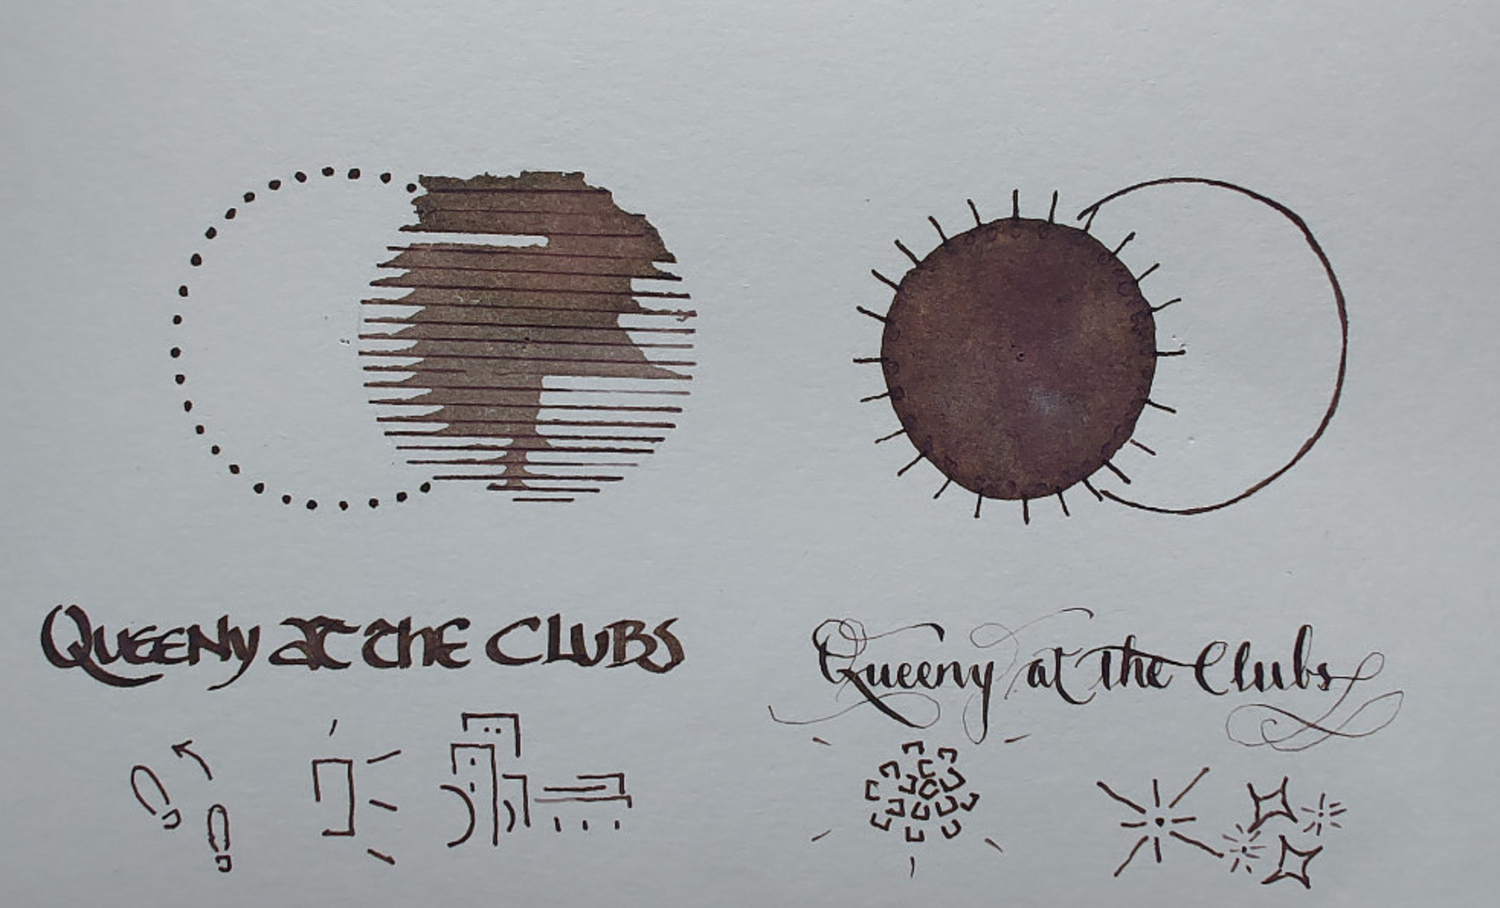 QUEENY at the CLUBS
Queeny at the Clubs